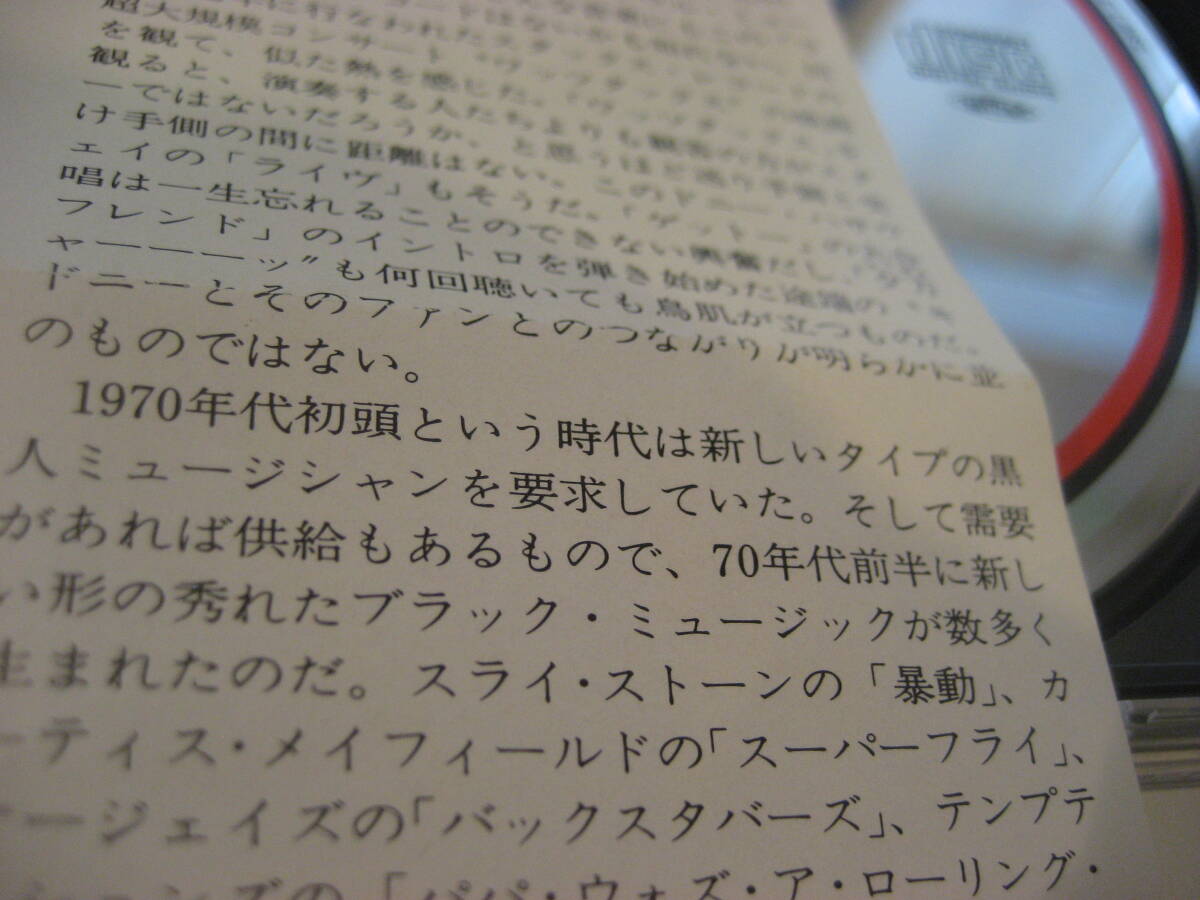 超大規模コンサート
を観て、似た熱を感じた。
観ると、演奏する人たちよりも観客の
ーではないだろうか、と思うほど
け手側の間に距離はない。このドニー・
ェイの「ライヴ」もそうだ。「ゲットー」の
唱は一生忘れることのできない興奮だし、
フレンド」のイントロを弾き始めた途端の“キ
ャーーーッ”も何回聴いても鳥肌が立つものだ。
ドニーとそのファンとのつながりが明らかに並
のものではない。
1970年代初頭という時代は新しいタイプの黒
人ミュージシャンを要求していた。そして需要
があれば供給もあるもので、70年代前半に新し
い形の秀れたブラック・ミュージックが数多く
生まれたのだ。スライ・ストーンの「暴動」、カ
ーティス・メイフィールドの「スーパーフライ」、
オージェイズの「バックスタバーズ」、テンプテ
ーションズの「パパ・ウォズ・ア・ローリング・